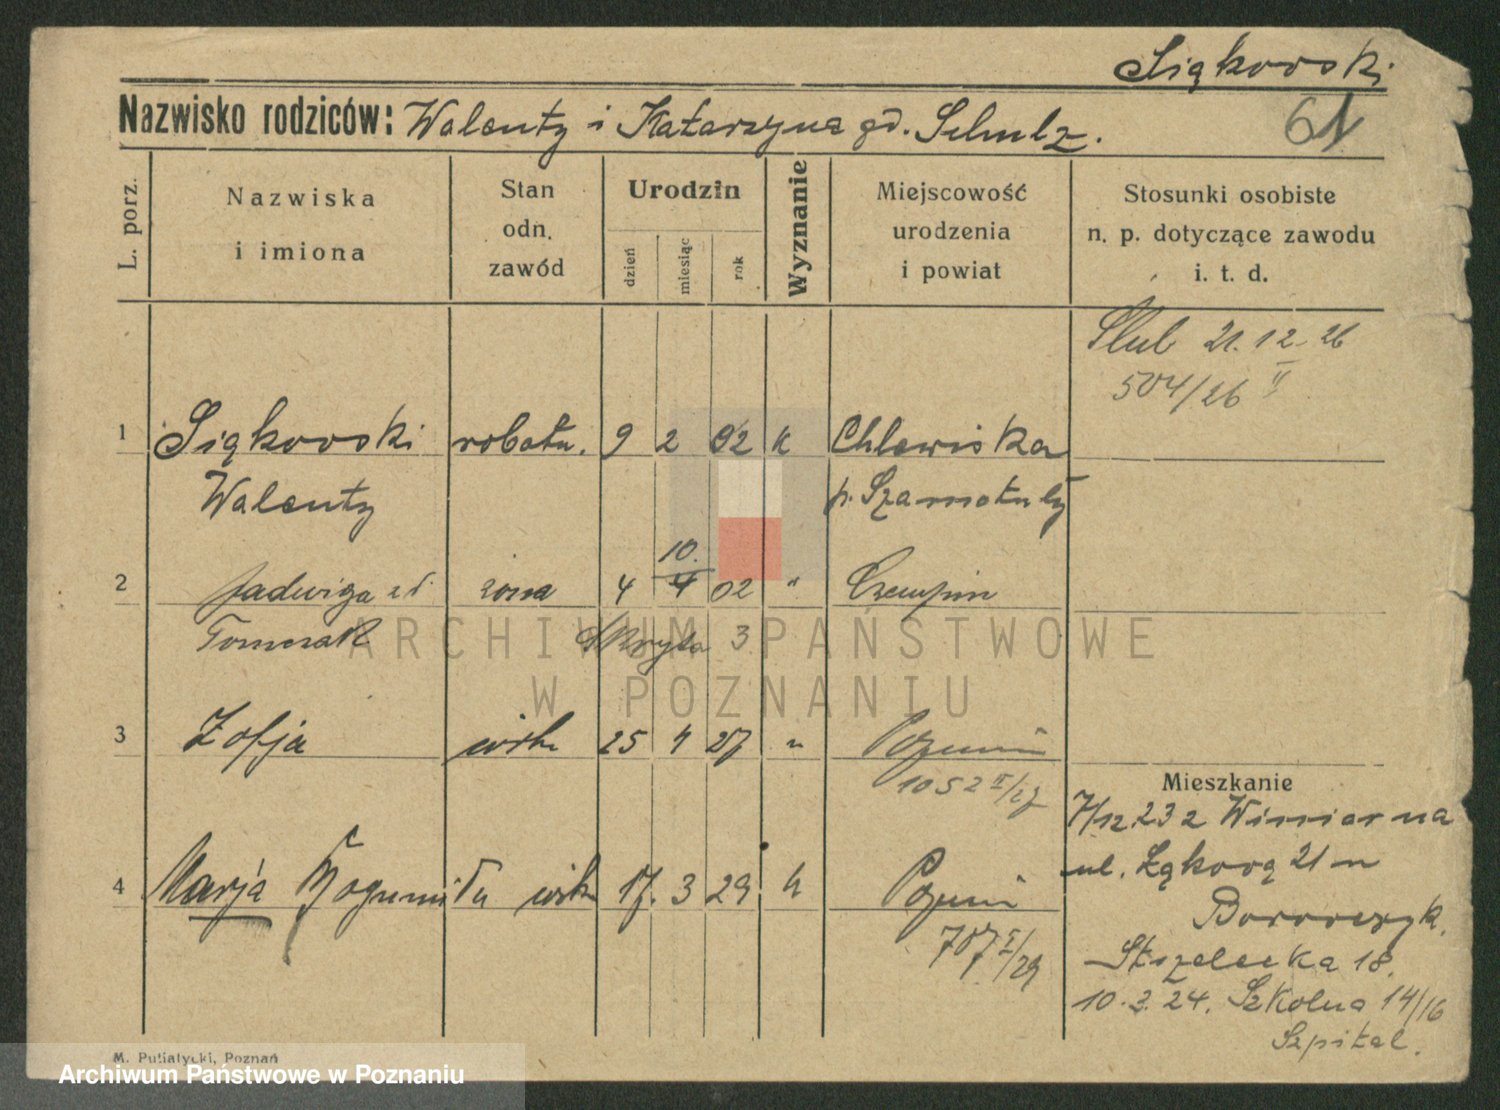 Siąkowski
Nazwisko rodziców: Walenty i Katarzyna zd. Schulz.
61
L. porz.
Nazwiska
i imiona
Stan
odn.
zawód
Urodzin
dzień
miesiąc
rok
Wyznanie
Miejscowość
urodzenia
i powiat
Stosunki osobiste
n. p. dotyczące zawodu
i. t. d.
Ślub 21. 12. 26
504/26 II
1 Siąkowski robotn. 9 2 02 k Chlewiska
Walenty p. Szamotuły
10.
2 Jadwiga zd. żona 4 4 02 " Czempin
Tomczak 3
3 Zofja 25 4 27 " Poznań
1052 II/27
4 Marja Bogumiła 17. 3 29 k Poznań
707 I/29
Mieszkanie
7/12.23 z Winiar na
ul. Łąkową 21 n
Borowczyk.
Strzelecka 18.
10.3.24. Szkolna 14/16
Szpital.
M. Putiatycki, Poznań
ARCHIWUM PAŃSTWOWE
W POZNANIU
Archiwum Państwowe w Poznaniu